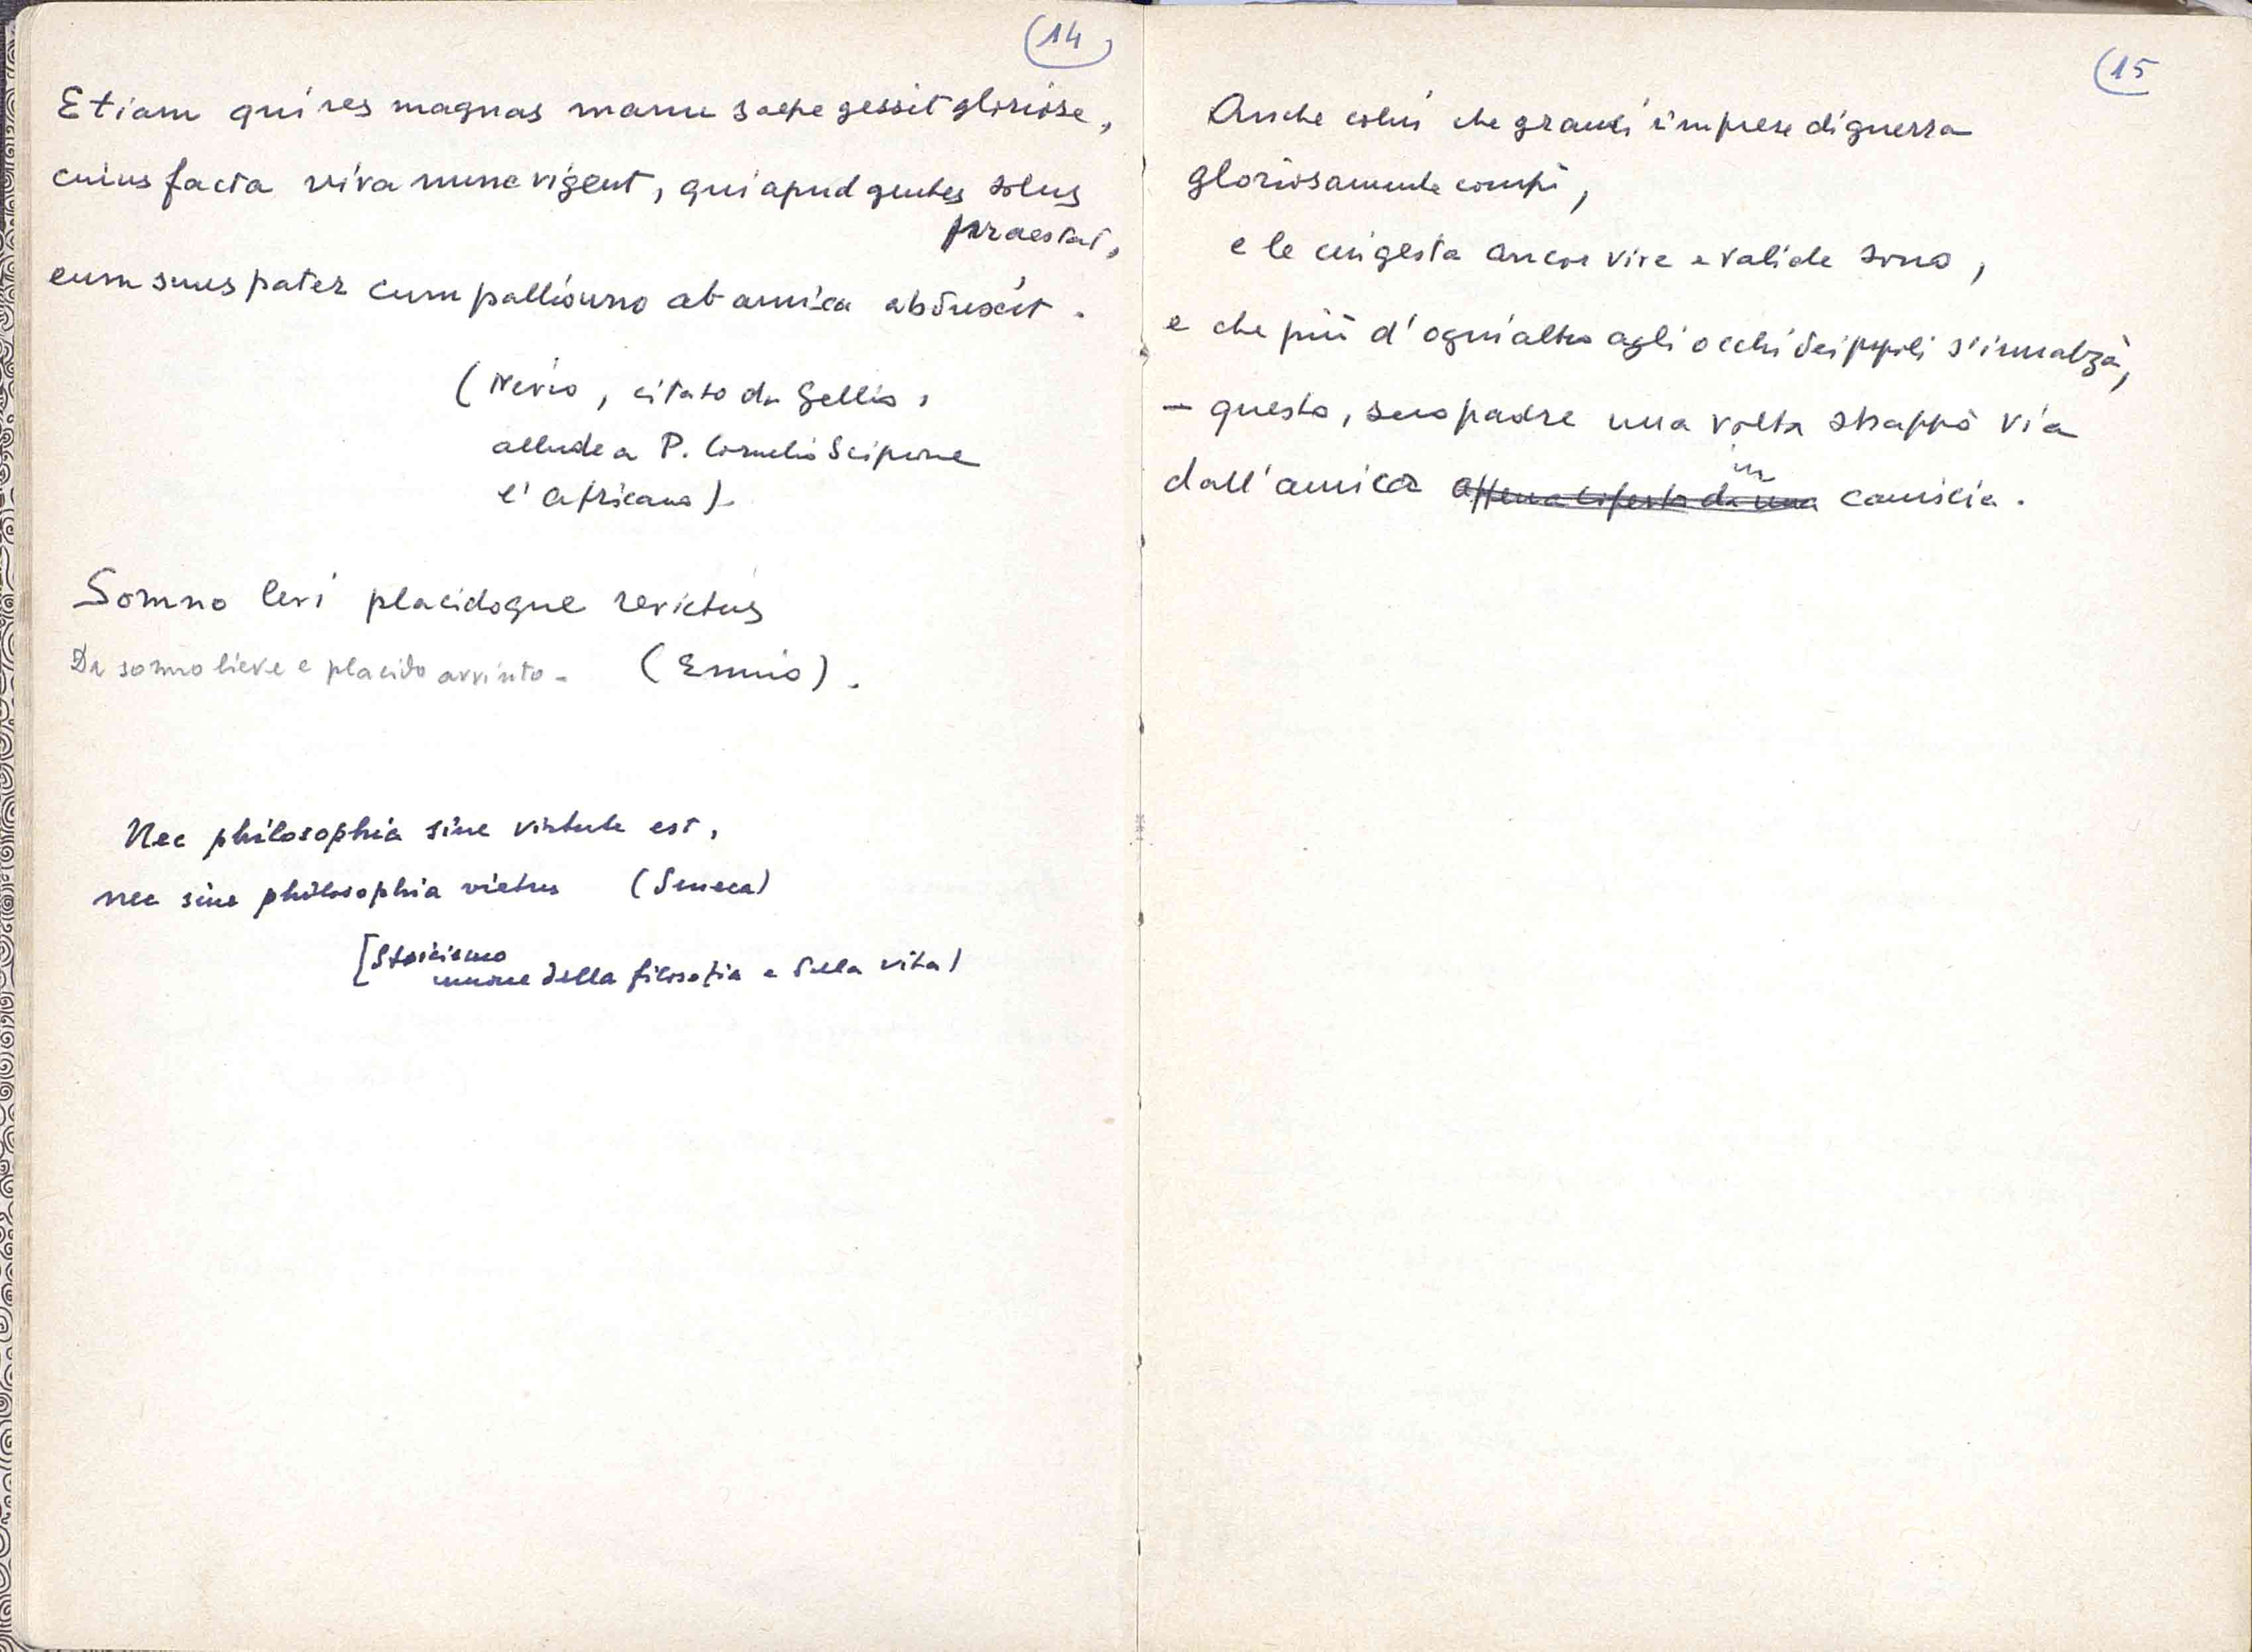 (14)
Etiam qui res magnas manu saepe gessit gloriose,
cuius facta viva nunc vigent, qui apud gentes solus
praestat,
eum suus pater cum pallio uno ab amica abduxit.
(Nevio, citato da Gellio,
allude a P. Cornelio Scipione
l'Africano).
Somno levi placidoque revictus
Da sonno lieve e placido avvinto. (Ennio).
Nec philosophia sine virtute est,
nec sine philosophia virtus (Seneca)
[Stoicismo
unione della filosofia e della vita)
(15
Anche colui che grandi imprese di guerra
gloriosamente compì,
e le cui gesta ancor vive e valide sono,
e che più d'ogni altro agli occhi dei popoli s'innalzà,
– questo, suo padre una volta strappò via
in
dall'amica appena coperto da una camicia.